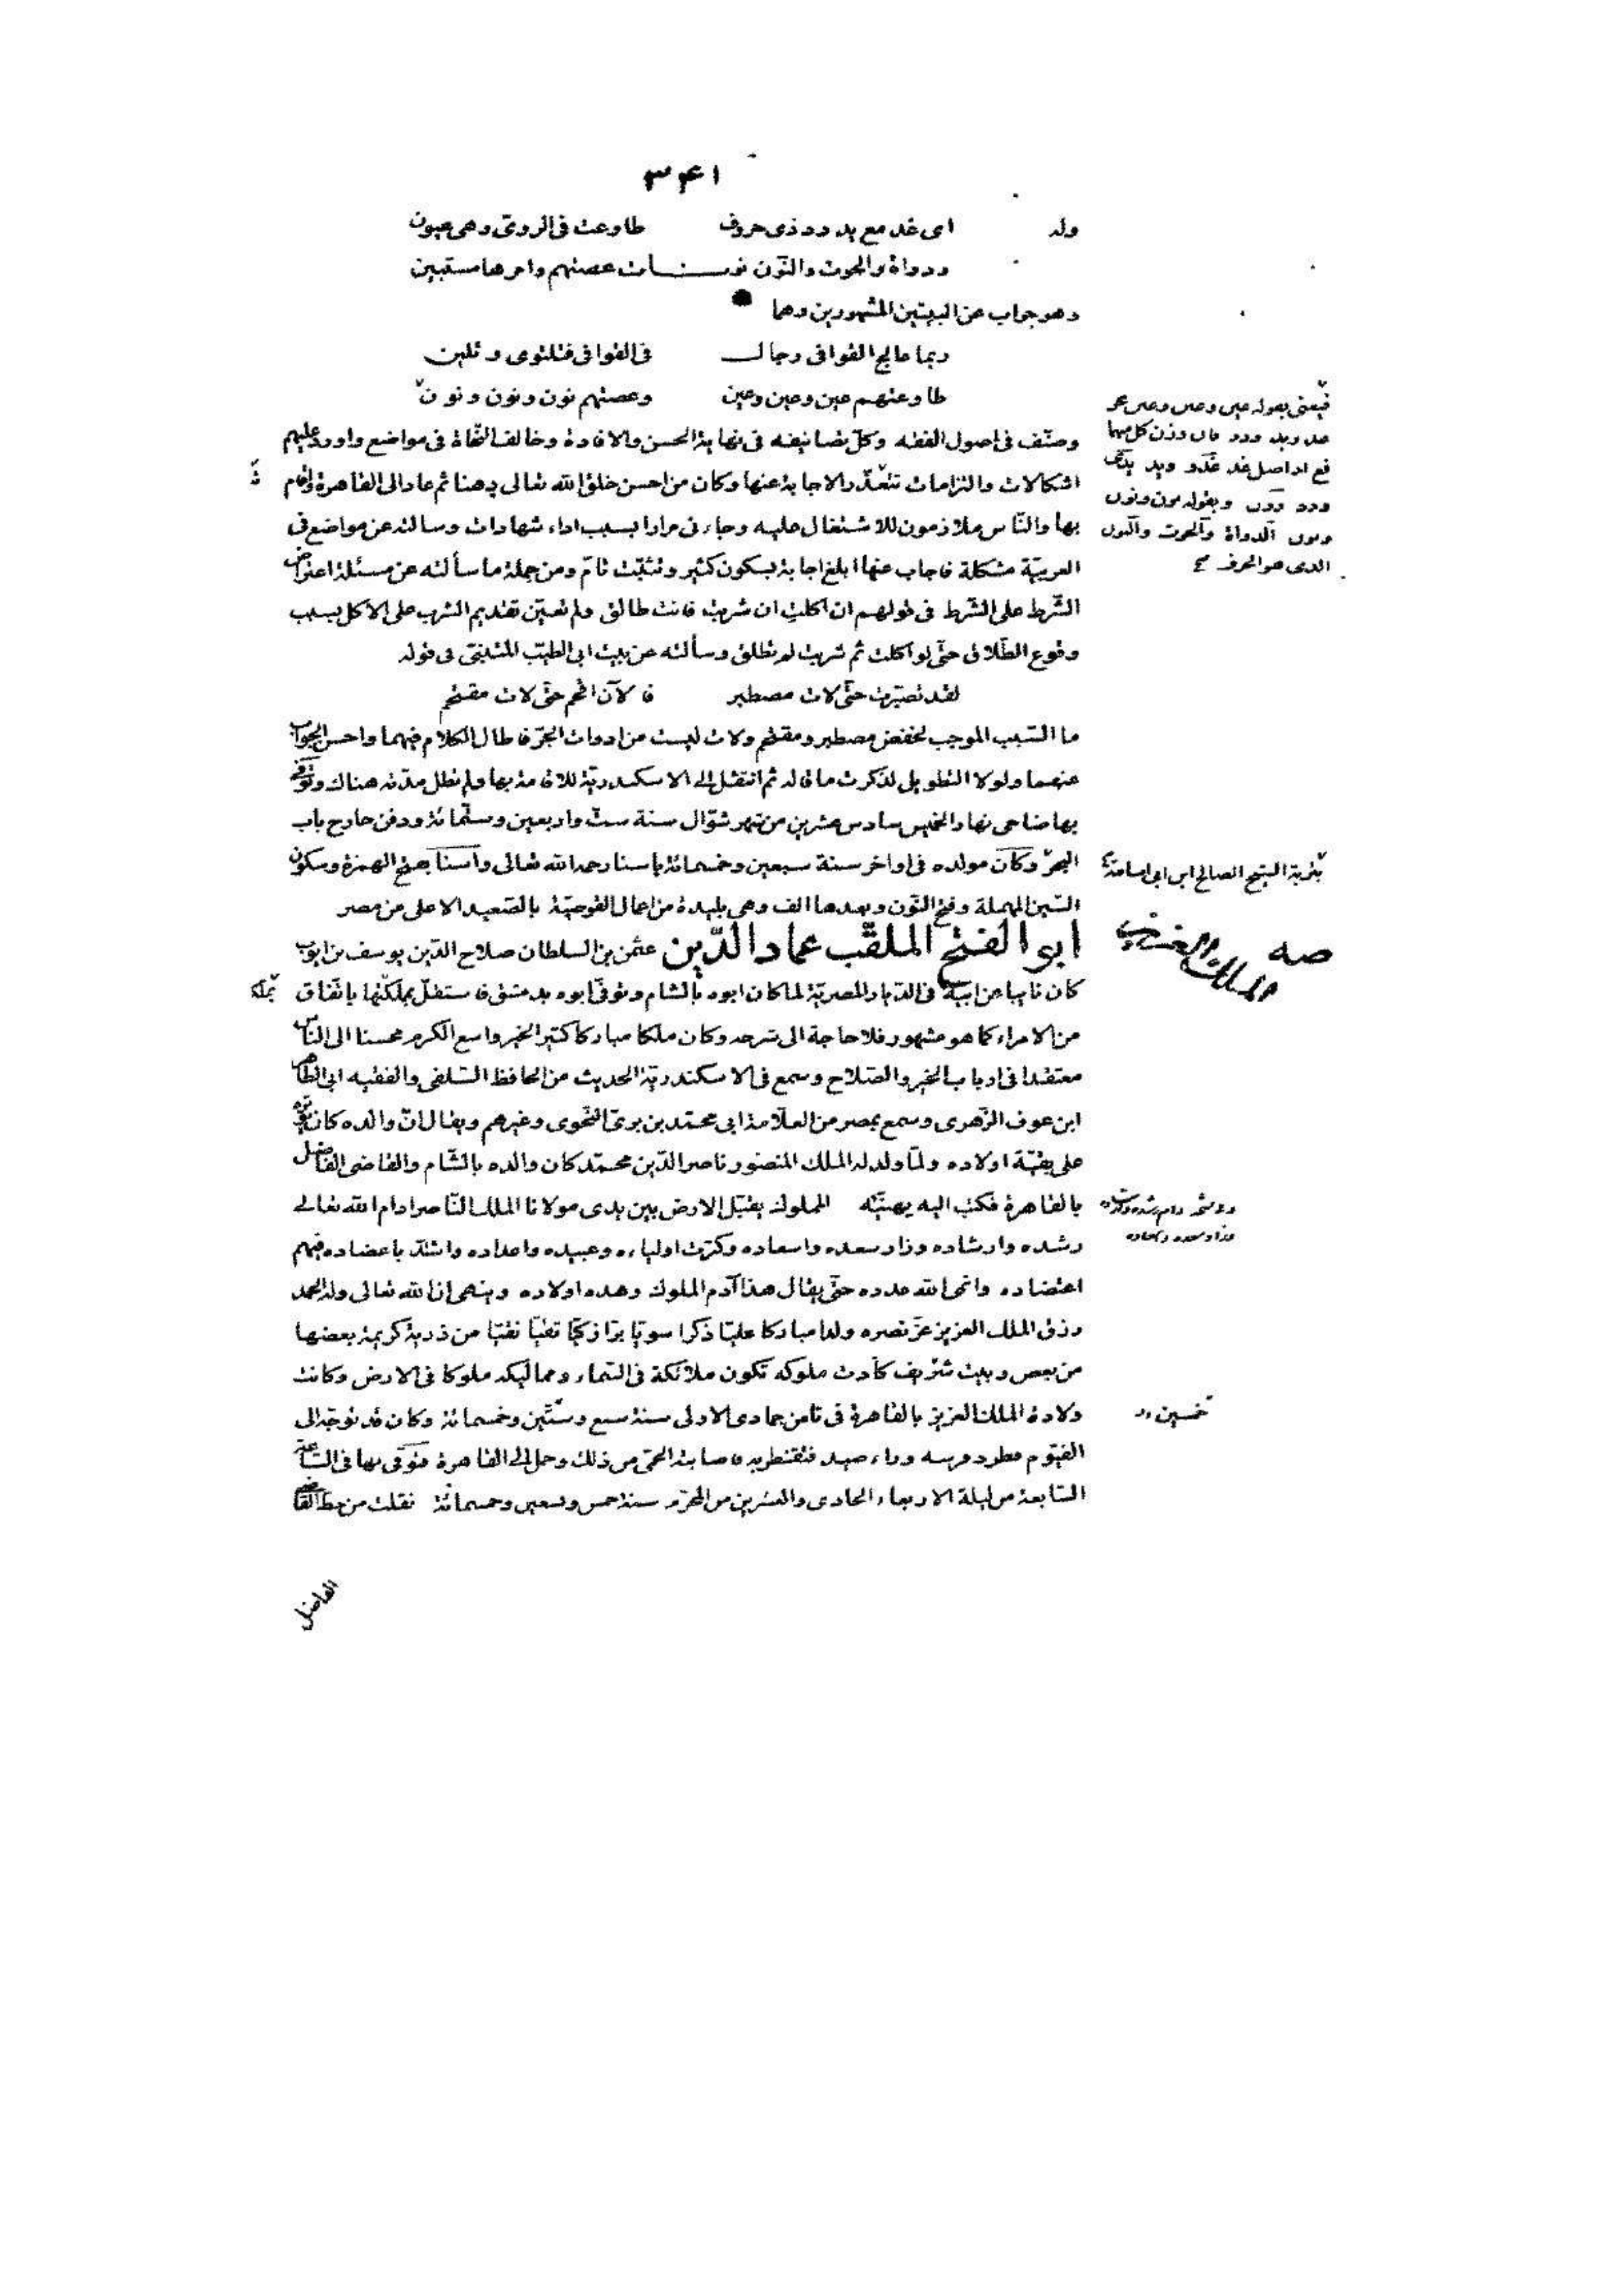 ٣٤١
وله ای غد مع يد دد ذی حروف طاوعت فی الروی وهی عیون
ودواة والحوت والنون نونـات عصتهم وامرها مستبین
وهو جواب عن البیتین المشهورین وهما
ربما عالج القوافی رجال فی القوافی فتلتوی وتلین
طاوعتهم عین وعین وعین وعصتهم نون ونون ونون
وصنّف فی اصول الفقه وکلّ تصانیفه فی نهایة الحسن والافادة وخالف النّحاة فی مواضع واورد علیهم
اشکالات والزامات تتعذّر الاجابة عنها وکان من احسن خلق الله تعالی ذهنا ثم عاد الی القاهرة واقام
بها والنّاس ملازمون للاشتغال علیه وجاءنی مرارا بسبب اداء شهادات وسالته عن مواضع فی
العربیّة مشکلة فاجاب عنها ابلغ اجابة بسکون کثیر وتثبّت تامّ ومن جملة ما سألته عن مسئلة اعتراض
الشّرط علی الشّرط فی قولهم ان اکلتِ ان شربت فانت طالق ولم تعیّن تقدیم الشرب علی الاکل بسبب
وقوع الطّلاق حتّی لو اکلت ثم شربت لم تطلق وسألته عن بیت ابی الطیّب المتنبّی فی قوله
لقد تصبّرت حتّی لات مصطبر فالآن اقحم حتّی لات مقتحم
ما السّبب الموجب لخفض مصطبر ومقتحم ولات لیست من ادوات الجرّ فاطال الکلام فیهما واحسن الجواب
عنهما ولولا التطویل لذکرت ما قاله ثم انتقل الی الاسکندریّة للاقامة بها ولم تطل مدّته هناک وتوفّی
بها ضاحی نهار الخمیس سادس عشرین من شهر شوّال سنة ستّ واربعین وستّمائة ودفن خارج باب
البحر وکان مولده فی اواخر سنة سبعین وخمسمائة باسنا رحمه الله تعالی وأسنا بفتح الهمزة وسکون
السّین المهملة وفتح النّون وبعدها الف وهی بلیدة من اعمال القوصیّة بالصّعید الاعلی من مصر
ابو الفتح الملقّب عماد الدّین عثمن بن السلطان صلاح الدّین یوسف بن ایوب
کان نایبا عن ابیه فی الدّیار المصریّة لما کان ابوه بالشام وتوفّی ابوه بدمشق فاستقلّ بملکتها باتّفاق
من الامراء کما هو مشهور فلا حاجة الی شرحه وکان ملکا مبارکا کثیر الخیر واسع الکرم محسنا الی الناس
معتقدا فی ارباب الخیر والصّلاح وسمع فی الاسکندریّة الحدیث من الحافظ السّلفی والفقیه ابی الطاهر
ابن عوف الزّهری وسمع بمصر من العلّامة ابی محمّد بن بریّ النّحوی وغیرهم ویقال انّ والده کان یؤثره
علی بقیّة اولاده ولمّا ولد له الملک المنصور ناصر الدّین محمّد کان والده بالشّام والقاضی الفاضل
بالقاهرة فکتب الیه یهنّئه المملوک یقبّل الارض بین یدی مولانا الملک النّاصر ادام الله تعالی
رشده وارشاده وزاد سعده واسعاده وکثرت اولیاءه وعبیده واعداده واشتدّ باعضاده فیهم
اعتضاده وانمی الله عدده حتّی یقال هذا آدم الملوک وهذه اولاده وینهی ان الله تعالی وله الحمد
رزق الملک العزیز عزّ نصره ولدا مبارکا علیّا ذکرا سویّا برّا زکیّا تقیّا نقیّا من ذریة کریمة بعضها
من بعض وبیت شریف کادت ملوکه تکون ملائکة فی السّماء وممالیکه ملوکا فی الارض وکانت
ولادة الملک العزیز بالقاهرة فی ثامن جمادی الاولی سنة سبع وستّین وخمسمائة وکان قد توجّه الی
الفیّوم فطرد فرسه وراء صید فتقنطر به فاصابته الحمّی من ذلک وحمل الی القاهرة فتوفّی بها فی السّاعة
السّابعة من لیلة الاربعاء الحادی والعشرین من المحرّم سنة خمس وتسعین وخمسمائة نقلت من خط القاضی
الفاضل
فیعنی بقوله عین وعین وعین نحو
غد وید ودد فان وزن کل منها
فع اذ اصل غد غدو وید یدی
ودد ددن وبقوله نون ونون
ونون الدواة والحوت والنون
الذی هو الحرف صح
بتربة الشیخ الصالح ابن ابی اسامة
صه الملک العزیز
خمسین